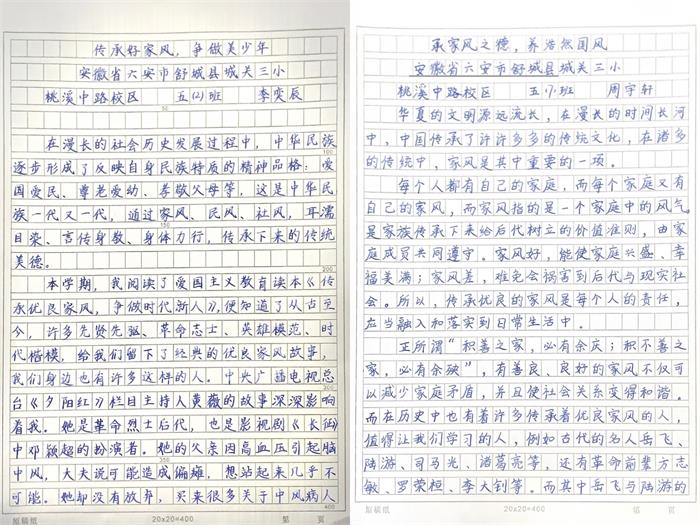 传承好家风，争做美少年
安徽省六安市舒城县城关三小
桃溪中路校区 五(2)班 李奕辰
50
在漫长的社会历史发展过程中，中华民族
100
逐步形成了反映自身民族特质的精神品格：爱
国爱民、尊老爱幼、孝敬父母等，这是中华民
族一代又一代，通过家风、民风、社风，耳濡
150
目染、言传身教、身体力行，传承下来的传统
200
美德。
本学期，我阅读了爱国主义教育读本《传
承优良家风，争做时代新人》，便知道了从古至
今，许多先贤先驱、革命志士、英雄模范、时
代楷模，给我们留下了经典的优良家风故事，
我们身边也有许多这样的人。中央广播电视总
300
台《夕阳红》栏目主持人黄薇的故事深深影响
着我。她是革命烈士后代，也是影视剧《长征》
中邓颖超的扮演者。她的父亲因高血压引起脑
350
中风，大夫说可能造成偏瘫，想站起来几乎不
可能。她却没有放弃，买来很多关于中风病人
400
原稿纸 20×20=400 第 页
承家风之德，养浩然国风
安徽省六安市舒城县城关三小
桃溪中路校区 五(7)班 周宇轩
华夏的文明源远流长，在漫长的时间长河
中，中国传承了许许多多的传统文化，在诸多
的传统中，家风是其中重要的一项。
每个人都有自己的家庭，而每个家庭又有
自己的家风，而家风指的是一个家庭中的风气。
是家族传承下来给后代树立的价值准则，由家
庭成员共同遵守。家风好，能使家庭兴盛、幸
福美满；家风差，难免会祸害到后代与现实社
会。所以，传承优良的家风是每个人的责任，
应当融入和落实到日常生活中。
正所谓“积善之家，必有余庆；积不善之
家，必有余殃”，有善良、良好的家风不仅可
以减少家庭矛盾，并且使社会关系变得和谐。
而在历史中也有着许多传承着优良家风的人，
值得让我们学习的人，例如古代的名人岳飞、
陆游、司马光、诸葛亮等，还有革命前辈方志
敏、罗荣桓、李大钊等。而其中岳飞与陆游的
原稿纸 20×20=400 第 页